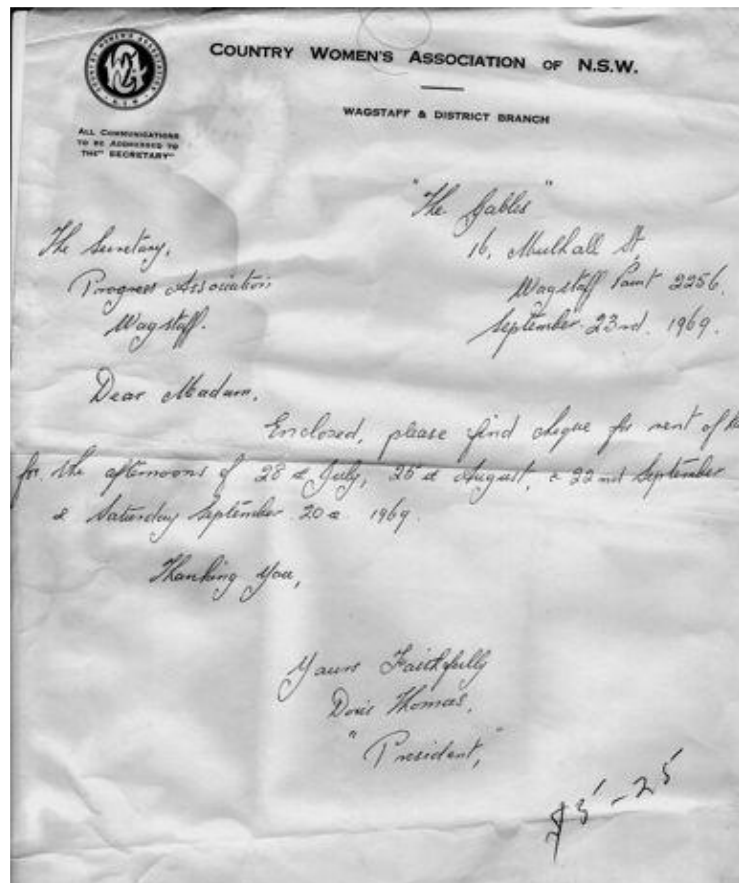 COUNTRY WOMEN'S ASSOCIATION OF N.S.W.
WAGSTAFF & DISTRICT BRANCH
COUNTRY WOMEN'S ASSOCIATION
N.S.W.
ALL COMMUNICATIONS
TO BE ADDRESSED TO
THE "SECRETARY"
"The Gables"
16, Mulhall St,
Wagstaff Point 2256.
September 23rd. 1969.
The Secretary,
Progress Association
Wagstaff.
Dear Madam,
Enclosed, please find cheque for rent of
for the afternoons of 28th July, 25th August, & 22nd September
& Saturday September 20th 1969.
Thanking you,
Yours Faithfully
Doris Thomas,
"President,"
$5-25